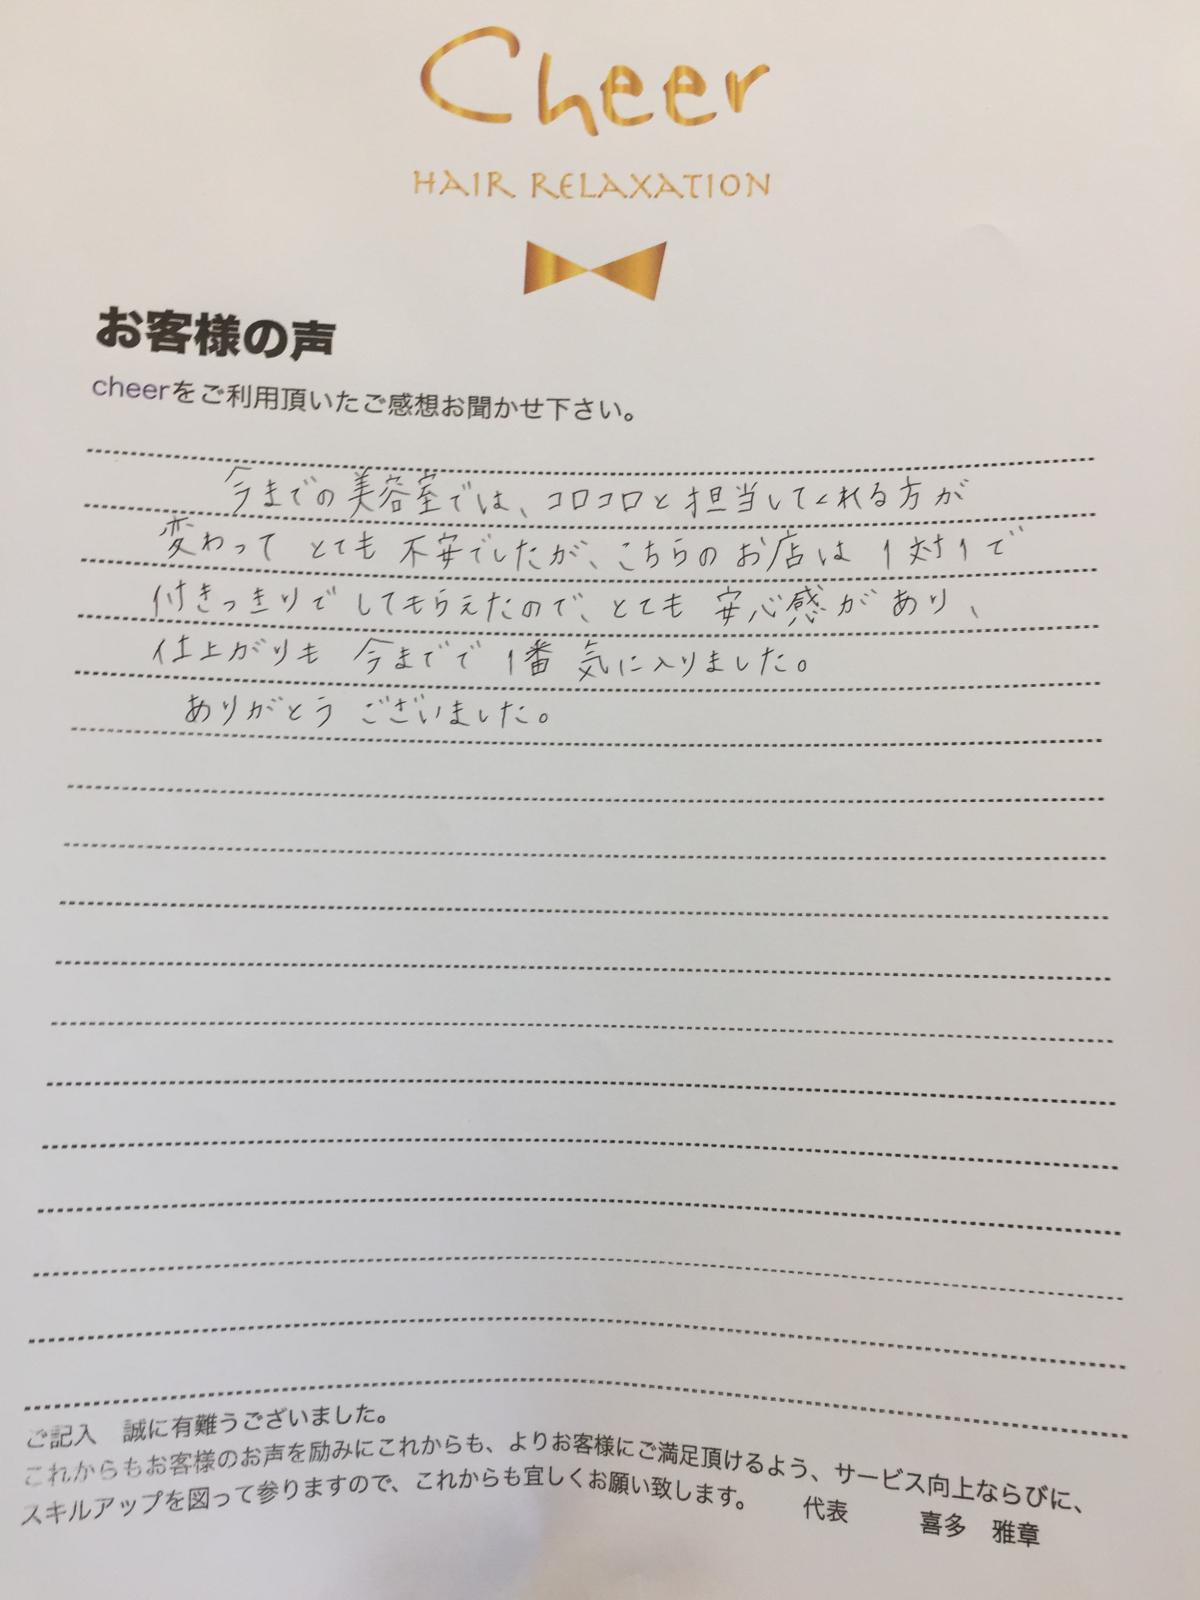 Cheer
HAIR RELAXATION
お客様の声
cheerをご利用頂いたご感想お聞かせ下さい。
今までの美容室では、コロコロと担当してくれる方が
変わって とても 不安でしたが、こちらの お店は 1対1で
付きっきりで してもらえたので、とても 安心感が あり、
仕上がりも 今までで 1番 気に入りました。
ありがとう ございました。
ご記入　誠に有難うございました。
これからもお客様のお声を励みにこれからも、よりお客様にご満足頂けるよう、サービス向上ならびに、
スキルアップを図って参りますので、これからも宜しくお願い致します。　代表　喜多　雅章